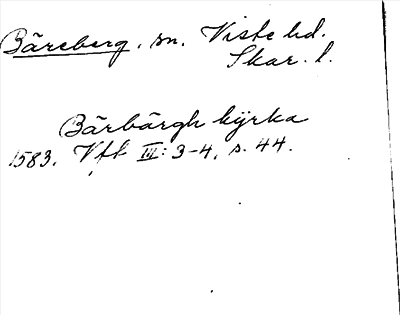 Bäreberg, sn. Viste hd.
Skar. l.
Bärbärgh kÿrka
1583. Vft III: 3-4, s. 44.